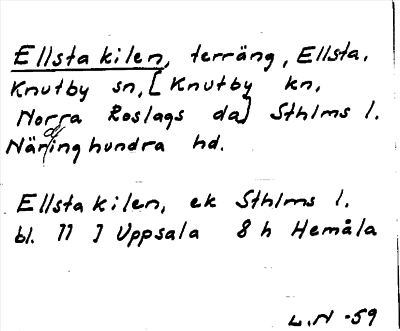 Ellsta kilen, terräng, Ellsta,
Knutby sn, [Knutby kn,
Norra Roslags da] Sthlms l.
Närdinghundra hd.
Ellsta kilen, ek Sthlms l.
bl. 77 J Uppsala 8 h Hemåla
L.N -59